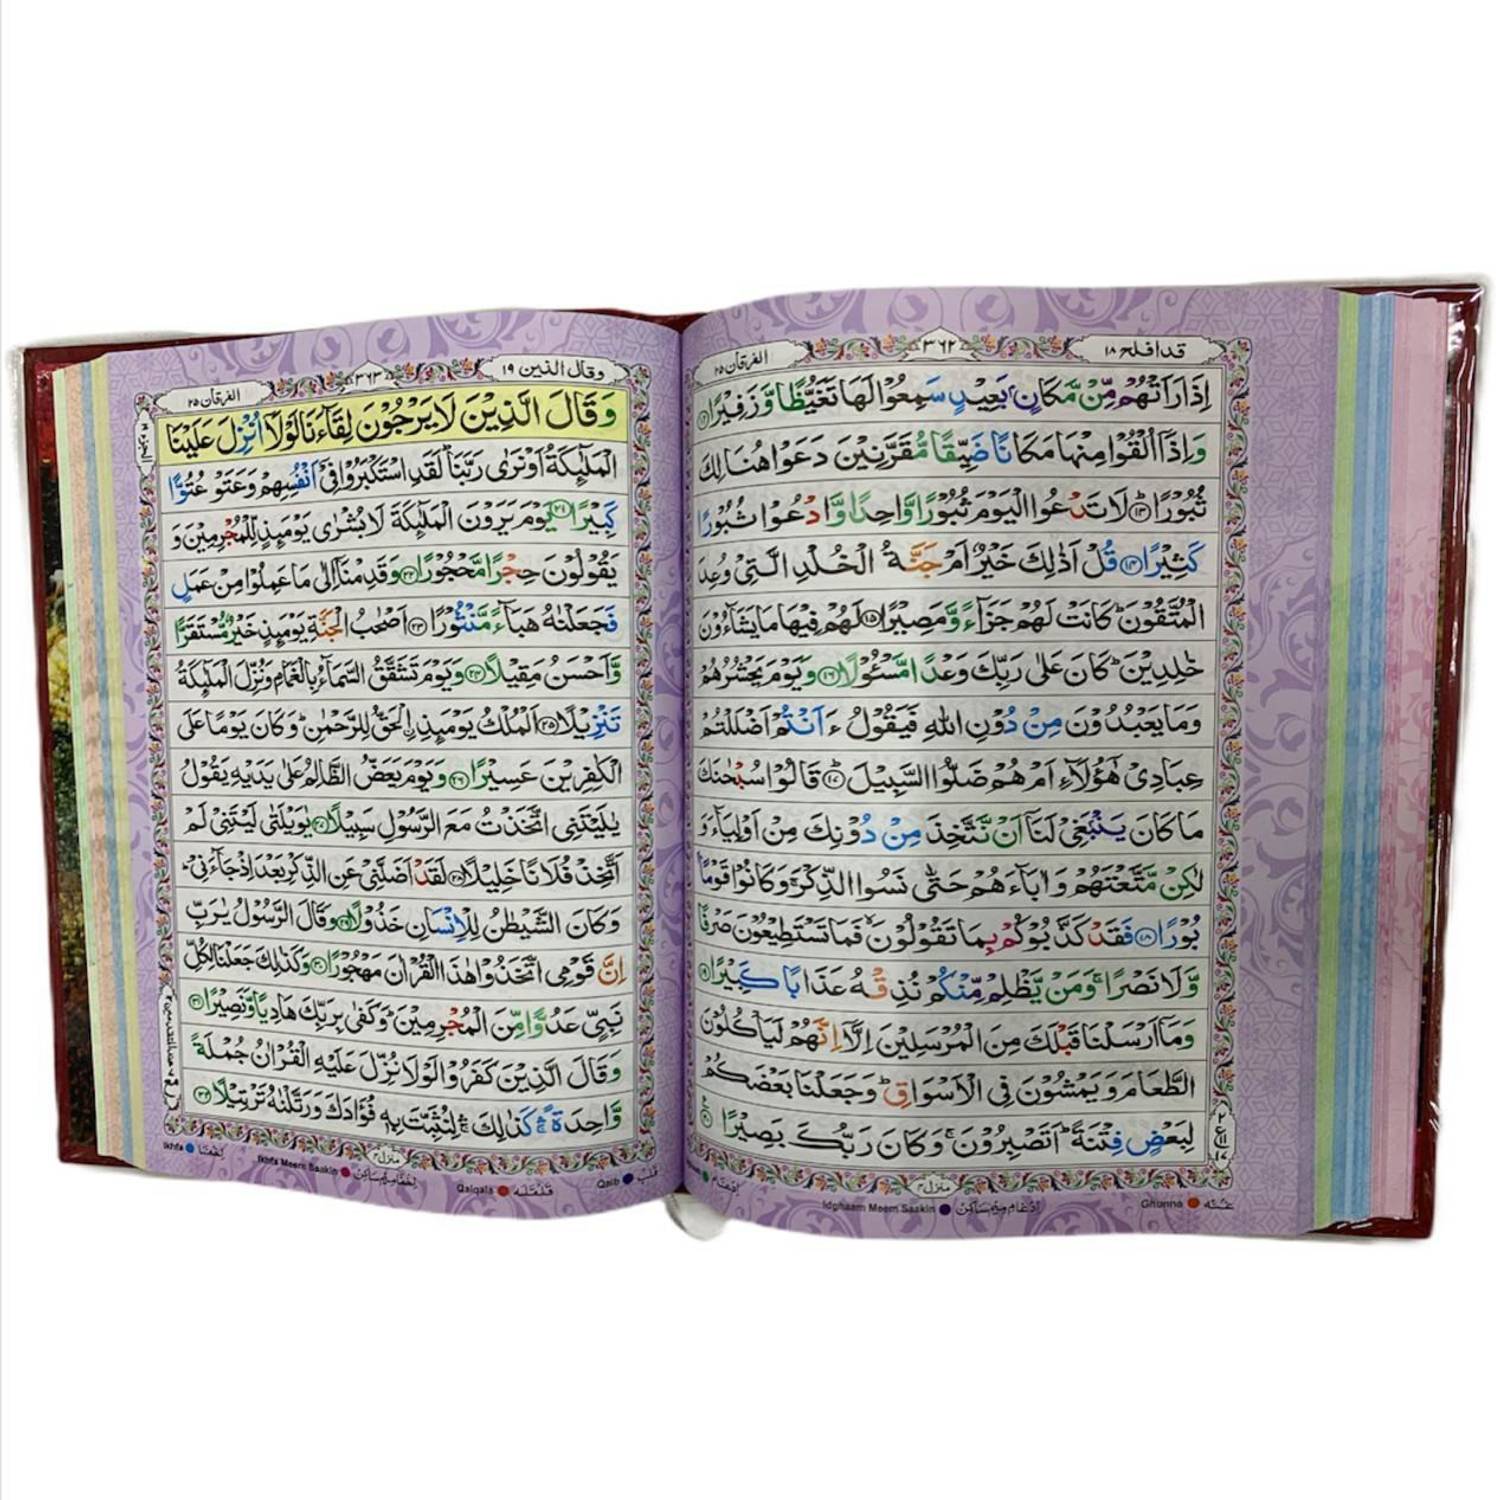 قد افلح ١٨
٣٦٢
الفرقان ٢٥
اِذَا رَاَتْهُمْ مِّنْ مَّكَانٍۭ بَعِيْدٍ سَمِعُوْا لَهَا تَغَيُّظًا وَّزَفِيْرًا ﴿١٢﴾
وَاِذَاۤ اُلْقُوْا مِنْهَا مَكَانًا ضَيِّقًا مُّقَرَّنِيْنَ دَعَوْا هُنَالِكَ
ثُبُوْرًا ﴿١٣﴾ لَا تَدْعُوا الْيَوْمَ ثُبُوْرًا وَّاحِدًا وَّادْعُوْا ثُبُوْرًا
كَثِيْرًا ﴿١٤﴾ قُلْ اَذٰلِكَ خَيْرٌ اَمْ جَنَّةُ الْخُلْدِ الَّتِىْ وُعِدَ
الْمُتَّقُوْنَ ؕ كَانَتْ لَهُمْ جَزَآءً وَّمَصِيْرًا ﴿١٥﴾ لَهُمْ فِيْهَا مَا يَشَآءُوْنَ
خٰلِدِيْنَ ؕ كَانَ عَلٰى رَبِّكَ وَعْدًا مَّسْئُوْلًا ﴿١٦﴾ وَيَوْمَ يَحْشُرُهُمْ
وَمَا يَعْبُدُوْنَ مِنْ دُوْنِ اللّٰهِ فَيَقُوْلُ ءَاَنْتُمْ اَضْلَلْتُمْ
عِبَادِىْ هٰٓؤُلَآءِ اَمْ هُمْ ضَلُّوا السَّبِيْلَ ﴿١٧﴾ قَالُوْا سُبْحٰنَكَ
مَا كَانَ يَنْۢبَغِىْ لَنَاۤ اَنْ نَّتَّخِذَ مِنْ دُوْنِكَ مِنْ اَوْلِيَآءَ وَ
لٰكِنْ مَّتَّعْتَهُمْ وَاٰبَآءَهُمْ حَتّٰى نَسُوا الذِّكْرَ ۚ وَكَانُوْا قَوْمًۢا
بُوْرًا ﴿١٨﴾ فَقَدْ كَذَّبُوْكُمْ بِمَا تَقُوْلُوْنَ ۙ فَمَا تَسْتَطِيْعُوْنَ صَرْفًا
وَّلَا نَصْرًا ۚ وَمَنْ يَّظْلِمْ مِّنْكُمْ نُذِقْهُ عَذَابًا كَبِيْرًا ﴿١٩﴾
وَمَاۤ اَرْسَلْنَا قَبْلَكَ مِنَ الْمُرْسَلِيْنَ اِلَّاۤ اِنَّهُمْ لَيَاْكُلُوْنَ
الطَّعَامَ وَيَمْشُوْنَ فِى الْاَسْوَاقِ ؕ وَجَعَلْنَا بَعْضَكُمْ
لِبَعْضٍ فِتْنَةً ؕ اَتَصْبِرُوْنَ ۚ وَكَانَ رَبُّكَ بَصِيْرًا ﴿٢٠﴾
منزل ٤
غنه Ghunna
ادغام ميم ساكن Idghaam Meem Saakin
ادغام
وقال الذين ١٩
٣٦٣
الفرقان ٢٥
وَقَالَ الَّذِيْنَ لَا يَرْجُوْنَ لِقَآءَنَا لَوْلَاۤ اُنْزِلَ عَلَيْنَا
الْمَلٰٓئِكَةُ اَوْ نَرٰى رَبَّنَا ؕ لَقَدِ اسْتَكْبَرُوْا فِىْۤ اَنْفُسِهِمْ وَعَتَوْ عُتُوًّا
كَبِيْرًا ﴿٢١﴾ يَوْمَ يَرَوْنَ الْمَلٰٓئِكَةَ لَا بُشْرٰى يَوْمَئِذٍ لِّلْمُجْرِمِيْنَ وَ
يَقُوْلُوْنَ حِجْرًا مَّحْجُوْرًا ﴿٢٢﴾ وَقَدِمْنَاۤ اِلٰى مَا عَمِلُوْا مِنْ عَمَلٍ
فَجَعَلْنٰهُ هَبَآءً مَّنْثُوْرًا ﴿٢٣﴾ اَصْحٰبُ الْجَنَّةِ يَوْمَئِذٍ خَيْرٌ مُّسْتَقَرًّا
وَّاَحْسَنُ مَقِيْلًا ﴿٢٤﴾ وَيَوْمَ تَشَقَّقُ السَّمَآءُ بِالْغَمَامِ وَنُزِّلَ الْمَلٰٓئِكَةُ
تَنْزِيْلًا ﴿٢٥﴾ اَلْمُلْكُ يَوْمَئِذِ اۨلْحَقُّ لِلرَّحْمٰنِ ؕ وَكَانَ يَوْمًا عَلَى
الْكٰفِرِيْنَ عَسِيْرًا ﴿٢٦﴾ وَيَوْمَ يَعَضُّ الظَّالِمُ عَلٰى يَدَيْهِ يَقُوْلُ
يٰلَيْتَنِى اتَّخَذْتُ مَعَ الرَّسُوْلِ سَبِيْلًا ﴿٢٧﴾ يٰوَيْلَتٰى لَيْتَنِىْ لَمْ
اَتَّخِذْ فُلَانًا خَلِيْلًا ﴿٢٨﴾ لَقَدْ اَضَلَّنِىْ عَنِ الذِّكْرِ بَعْدَ اِذْ جَآءَنِىْ ؕ
وَكَانَ الشَّيْطٰنُ لِلْاِنْسَانِ خَذُوْلًا ﴿٢٩﴾ وَقَالَ الرَّسُوْلُ يٰرَبِّ
اِنَّ قَوْمِى اتَّخَذُوْا هٰذَا الْقُرْاٰنَ مَهْجُوْرًا ﴿٣٠﴾ وَكَذٰلِكَ جَعَلْنَا لِكُلِّ
نَبِىٍّ عَدُوًّا مِّنَ الْمُجْرِمِيْنَ ؕ وَكَفٰى بِرَبِّكَ هَادِيًا وَّنَصِيْرًا ﴿٣١﴾
وَقَالَ الَّذِيْنَ كَفَرُوْا لَوْلَا نُزِّلَ عَلَيْهِ الْقُرْاٰنُ جُمْلَةً
وَّاحِدَةً ۛۚ كَذٰلِكَ ۛۚ لِنُثَبِّتَ بِهٖ فُؤَادَكَ وَرَتَّلْنٰهُ تَرْتِيْلًا ﴿٣٢﴾
منزل ٤
قلب Qalb
قلقله Qalqala
اخفا ميم ساكن Ikhfa Meem Saakin
اخفا Ikhfa